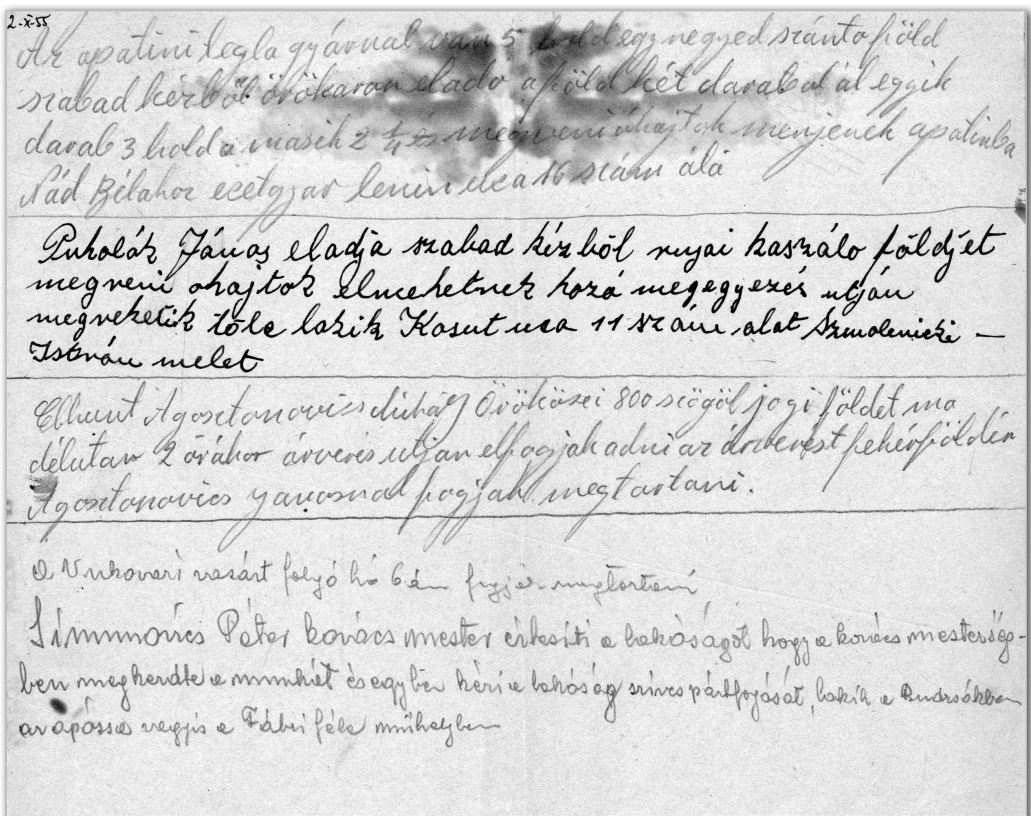 2-X-55
Az apatini tégla gyárnál van 5 hold egy negyed szántoföld
szabad kézböl örökáron elado a föld két darabol ál eggik
darab 3 hold a másik 2 1/4 és megveni ohajtok menjenek apatinba
Nád Bélahoz ecetgyar lenin uca 16 szám álá
Pukolák János eladja szabad kézböl rujai kaszálo földjét
megveni ohajtok elmehetnek hozá megegyezés utján
megvehetik töle lakik Kosut uca 11 szám alat Szmolenicki —
István melet
Elhunt Agosztonovics Örökösei 800 szögöl jogi földet ma
délután 2 órákor árverés utján elfogják adni az árverést fehérföldön
Agosztonovics Janosnál fogják megtartani.
a Vukovári vasárt folyó hó 6án fogják megtartani
Simunovics Péter kovács mester értesiti a lakóságot hogy a kovács mesterség-
ben megkezdte a munkát és egyben kéri a lakóság szives pártfogását, lakik a Budzsákban
az apóssa vagyis a Fábri féle mühelyben